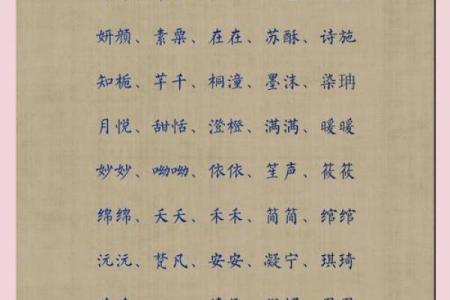 妍颜、素粟、在在、苏酥、诗施
知栀、芊千、桐潼、墨沫、染珃
月悦、甜恬、澄橙、满满、暖暖
妙妙、呦呦、依依、笙声、筱筱
绵绵、夭夭、禾禾、简简、绾绾
沅沅、梵凡、安安、凝宁、琪琦